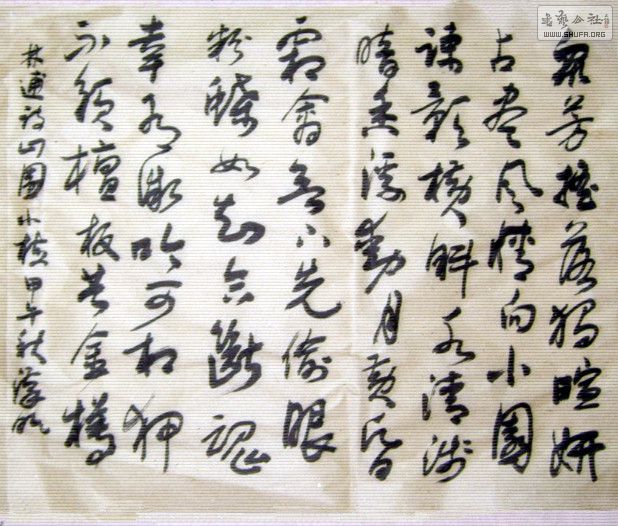 眾芳摇落獨暄妍
占尽風情向小園
疎影横斜水清浅
暗香浮動月黄昏
霜禽欲下先偷眼
粉蝶如知合斷魂
幸有微吟可相狎
不須檀板共金樽
林逋诗山園小梅甲午秋
书艺公社
WWW.SHUFA.ORG